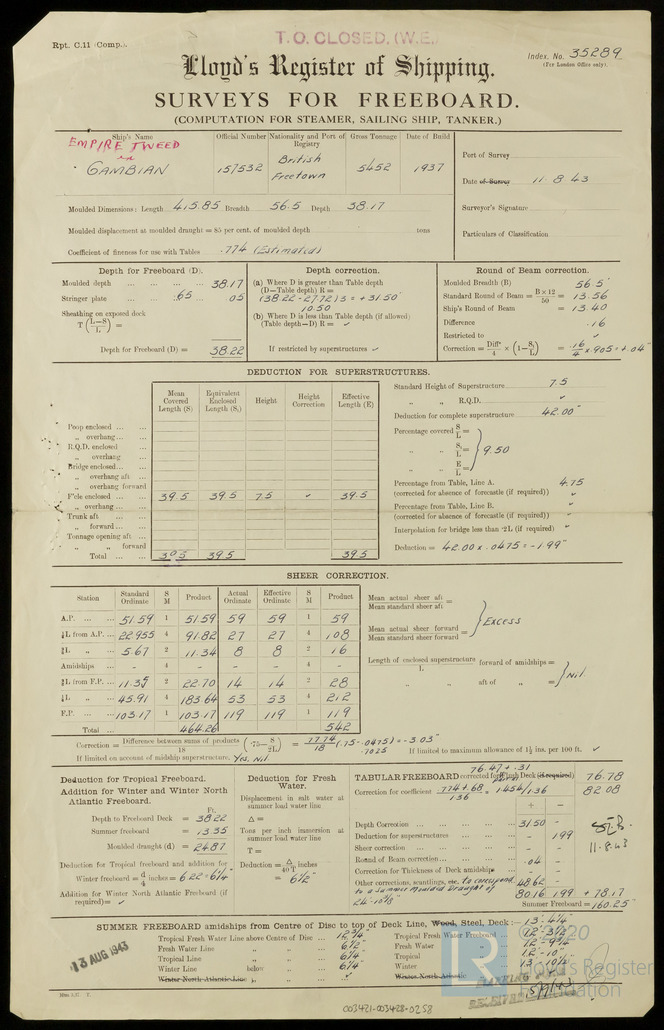 T.O. CLOSED. (W.E.)
Rpt. C.11 (Comp.).
Index. No. 35289
(For London Office only).
Lloyd's Register of Shipping.
SURVEYS FOR FREEBOARD.
(COMPUTATION FOR STEAMER, SAILING SHIP, TANKER.)
Ship's Name Official Number Nationality and Port of Registry Gross Tonnage Date of Build
EMPIRE TWEED
ex
GAMBIAN 157532 British Freetown 5452 1937
Port of Survey
Date of Survey 11.8.43
Surveyor's Signature
Particulars of Classification
Moulded Dimensions: Length 415.85 Breadth 56.5 Depth 38.17
Moulded displacement at moulded draught = 85 per cent. of moulded depth tons
Coefficient of fineness for use with Tables .774 (Estimated)
Depth for Freeboard (D).
Moulded depth 38.17
Stringer plate .65 05
Sheathing on exposed deck
T (L-S/L) =
Depth for Freeboard (D) = 38.22
Depth correction.
(a) Where D is greater than Table depth
(D—Table depth) R =
(38.22-27.72)3 = +31.50"
10.50
(b) Where D is less than Table depth (if allowed)
(Table depth—D) R = ✓
If restricted by superstructures ✓
Round of Beam correction.
Moulded Breadth (B) 56.5
Standard Round of Beam = B×12/50 = 13.56
Ship's Round of Beam = 13.40
Difference .16
Restricted to ✓
Correction = Diffce/4 × (1-S₁/L) = .16/4 × .905 = +.04"
DEDUCTION FOR SUPERSTRUCTURES.
Mean Covered Length (S) Equivalent Enclosed Length (S₁) Height Height Correction Effective Length (E)
Poop enclosed
„ overhang
R.Q.D. enclosed
„ overhang
Bridge enclosed
„ overhang aft
„ overhang forward
F'cle enclosed 39.5 39.5 7.5 ✓ 39.5
„ overhang
Trunk aft
„ forward
Tonnage opening aft
„ „ forward
Total 39.5 39.5 39.5
Standard Height of Superstructure 7.5
„ „ R.Q.D. ✓
Deduction for complete superstructure 42.00"
Percentage covered S/L =
„ „ S₁/L = } 9.50
„ „ E/L =
Percentage from Table, Line A. 4.75
(corrected for absence of forecastle (if required)) ✓
Percentage from Table, Line B. ✓
(corrected for absence of forecastle (if required)) ✓
Interpolation for bridge less than ·2L (if required) ✓
Deduction = 42.00 × .0475 = -1.99"
SHEER CORRECTION.
Station Standard Ordinate S M Product Actual Ordinate Effective Ordinate S M Product
A.P. 51.59 1 51.59 59 59 1 59
⅙L from A.P. 22.955 4 91.82 27 27 4 108
⅓L „ 5.67 2 11.34 8 8 2 16
Amidships - 4 - - - 4 -
⅓L from F.P. 11.35 2 22.70 14 14 2 28
⅙L „ 45.91 4 183.64 53 53 4 212
F.P. 103.17 1 103.17 119 119 1 119
Total 464.26 542
Mean actual sheer aft / Mean standard sheer aft =
Mean actual sheer forward / Mean standard sheer forward = } Excess
Length of enclosed superstructure / L forward of amidships =
„ „ aft of „ = } Nil.
Correction = Difference between sums of products / 18 (·75-S/2L) = 77.74/18 (.75-.0475) = -3.03"
.7025
If limited on account of midship superstructure. Yes, Nil.
If limited to maximum allowance of 1½ ins. per 100 ft. ✓
Deduction for Tropical Freeboard.
Addition for Winter and Winter North Atlantic Freeboard.
Ft.
Depth to Freeboard Deck = 38.22
Summer freeboard = 13.35
Moulded draught (d) = 24.87
Deduction for Tropical freeboard and addition for
Winter freeboard = d/4 inches = 6.22 = 6¼"
Addition for Winter North Atlantic Freeboard (if required) = ✓
Deduction for Fresh Water.
Displacement in salt water at summer load water line
Δ =
Tons per inch immersion at summer load water line
T =
Deduction = Δ/40T inches
= 6½"
TABULAR FREEBOARD corrected for Flush Deck (if required) 76.47 + .31 76.78
Correction for coefficient .774+.68/1.36 = 1.454/1.36 82.08
+ -
Depth Correction 31.50 -
Deduction for superstructures - 1.99
Sheer correction - -
Round of Beam correction .04 -
Correction for Thickness of Deck amidships - -
Other corrections, scantlings, etc. to correspond to a Summer Moulded Draught of 24'-10⅜" 48.62 -
80.16 1.99 +78.17
Summer Freeboard = 160.25"
11.8.43
SUMMER FREEBOARD amidships from Centre of Disc to top of Deck Line, Wood, Steel, Deck:— 13'-4¼"
Tropical Fresh Water Line above Centre of Disc 12¾"
Fresh Water Line „ „ 6½"
Tropical Line „ „ 6¼"
Winter Line below „ „ 6¼"
Winter North Atlantic Line „ „
Tropical Fresh Water Freeboard 12'-3½"
Fresh Water „ 12'-9¾"
Tropical „ 12'-10"
Winter „ 13'-10½"
Winter North Atlantic „
13 AUG 1943
LR
2020
Lloyd's Register
Foundation
RECEIVED
003421-003428-0258